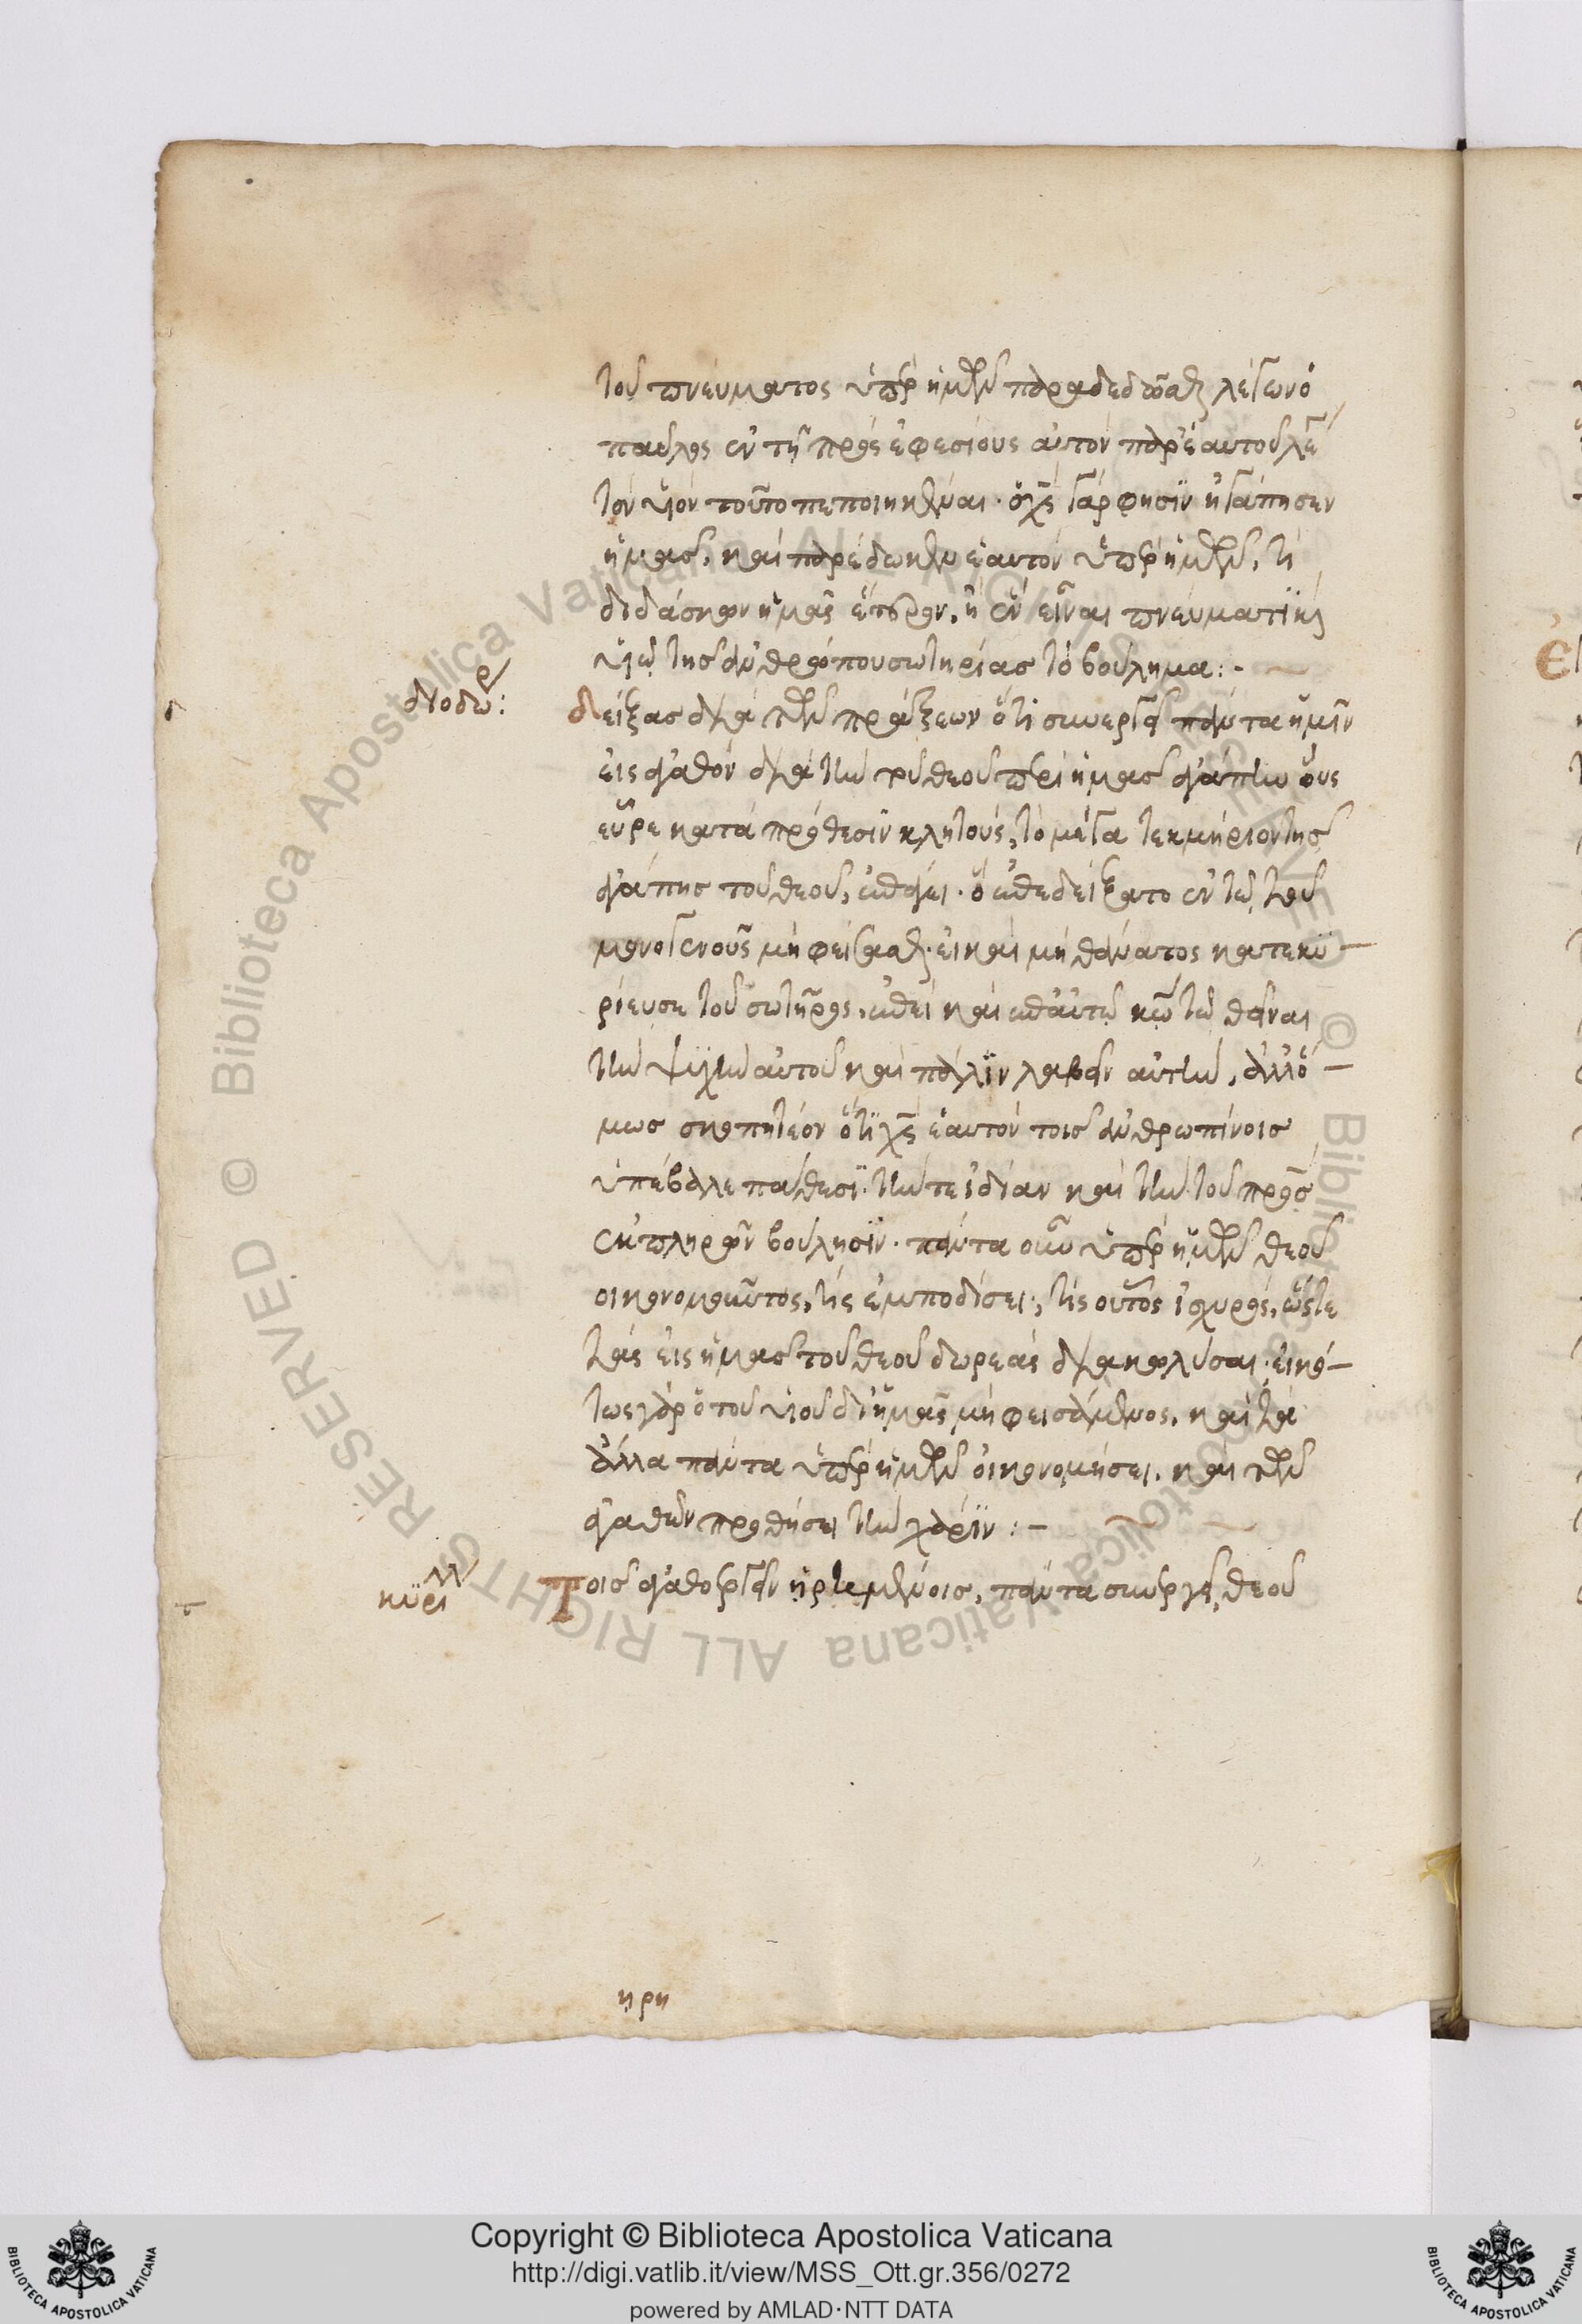 τοῦ πνεύματος ὑπὲρ ἡμῶν παραδεδόσθαι λέγων ὁ
παῦλος ἐν τῆ πρὸς ἐφεσίους αὐτὸν παρ' ἑαυτοῦ λέγει
τὸν υἱὸν τοῦτο πεποιηκέναι· ὁ χς γάρ φησϊν ἠγάπησεν
ἡμας, καὶ παρέδωκεν ἑαυτὸν ὑπὲρ ἡμῶν, τί
διδάσκων ἡμᾶς ἕτερον, ἢ ἓν εἶναι πνεύματϊ καὶ
υἱῶ τῆς ἀνθρώπου σωτηρίας τὸ βούλημα:-
διοδώρ:
δείξας διὰ τῶν πράξεων ὅτι συνεργεῖ πάντα ἡμῖν
εἰς ἀγαθὸν διὰ τὴν τοῦ θεοῦ περὶ ἡμας ἀγάπην οὓς
εὗρε κατὰ πρόθεσϊν κλητοὺς, τὸ μέγα τεκμήριον τῆς
ἀγάπης τοῦ θεοῦ, ἐπάγει· ὃ ἐπεδείξατο ἐν τῶ τοῦ
μονογενοῦς μὴ φείσασθαι· εἰ καὶ μὴ θάνατος κατεκϋ-
ρίευσε τοῦ σωτῆρος, ἐπεὶ καὶ ἐπ' αὐτῶ κεῖται τῶ θεῖναι
τὴν ψϋχὴν αὐτοῦ καὶ πάλϊν λαβεῖν αὐτὴν, ἀλλ' ὅ-
μως σκοπητέον ὅτϊ χς ἑαυτὸν τοῖς ἀνθρωπίνοις
ὑπέβαλε πάθεσϊ· τήν τε ἰδίαν καὶ τὴν τοῦ πρς
ἐκπληρῶν βούλησϊν· πάντα οὖν ὑπὲρ ἡμῶν θεοῦ
οἰκονομοῦντος, τίς ἐμποδίσει, τίς οὕτως ἰσχυρὸς, ὥστε
τὰς εἰς ἡμας τοῦ θεοῦ δωρεὰς διακωλύσαι· εἰκό-
τως γὰρ ὁ τοῦ υἱοῦ δι' ἡμᾶς μὴ φεισάμενος, καὶ τὰ
ἄλλα πάντα ὑπὲρ ἡμῶν οἰκονομήσει, καὶ τῶν
ἀγαθῶν προθήσει τὴν χάρϊν:-
κϋρίλλ
Τοῖς ἀγαθοεργεῖν ἠρτεμένοις, πάντα συνεργεῖ, θεοῦ
Copyright © Biblioteca Apostolica Vaticana
http://digi.vatlib.it/view/MSS_Ott.gr.356/0272
powered by AMLAD·NTT DATA